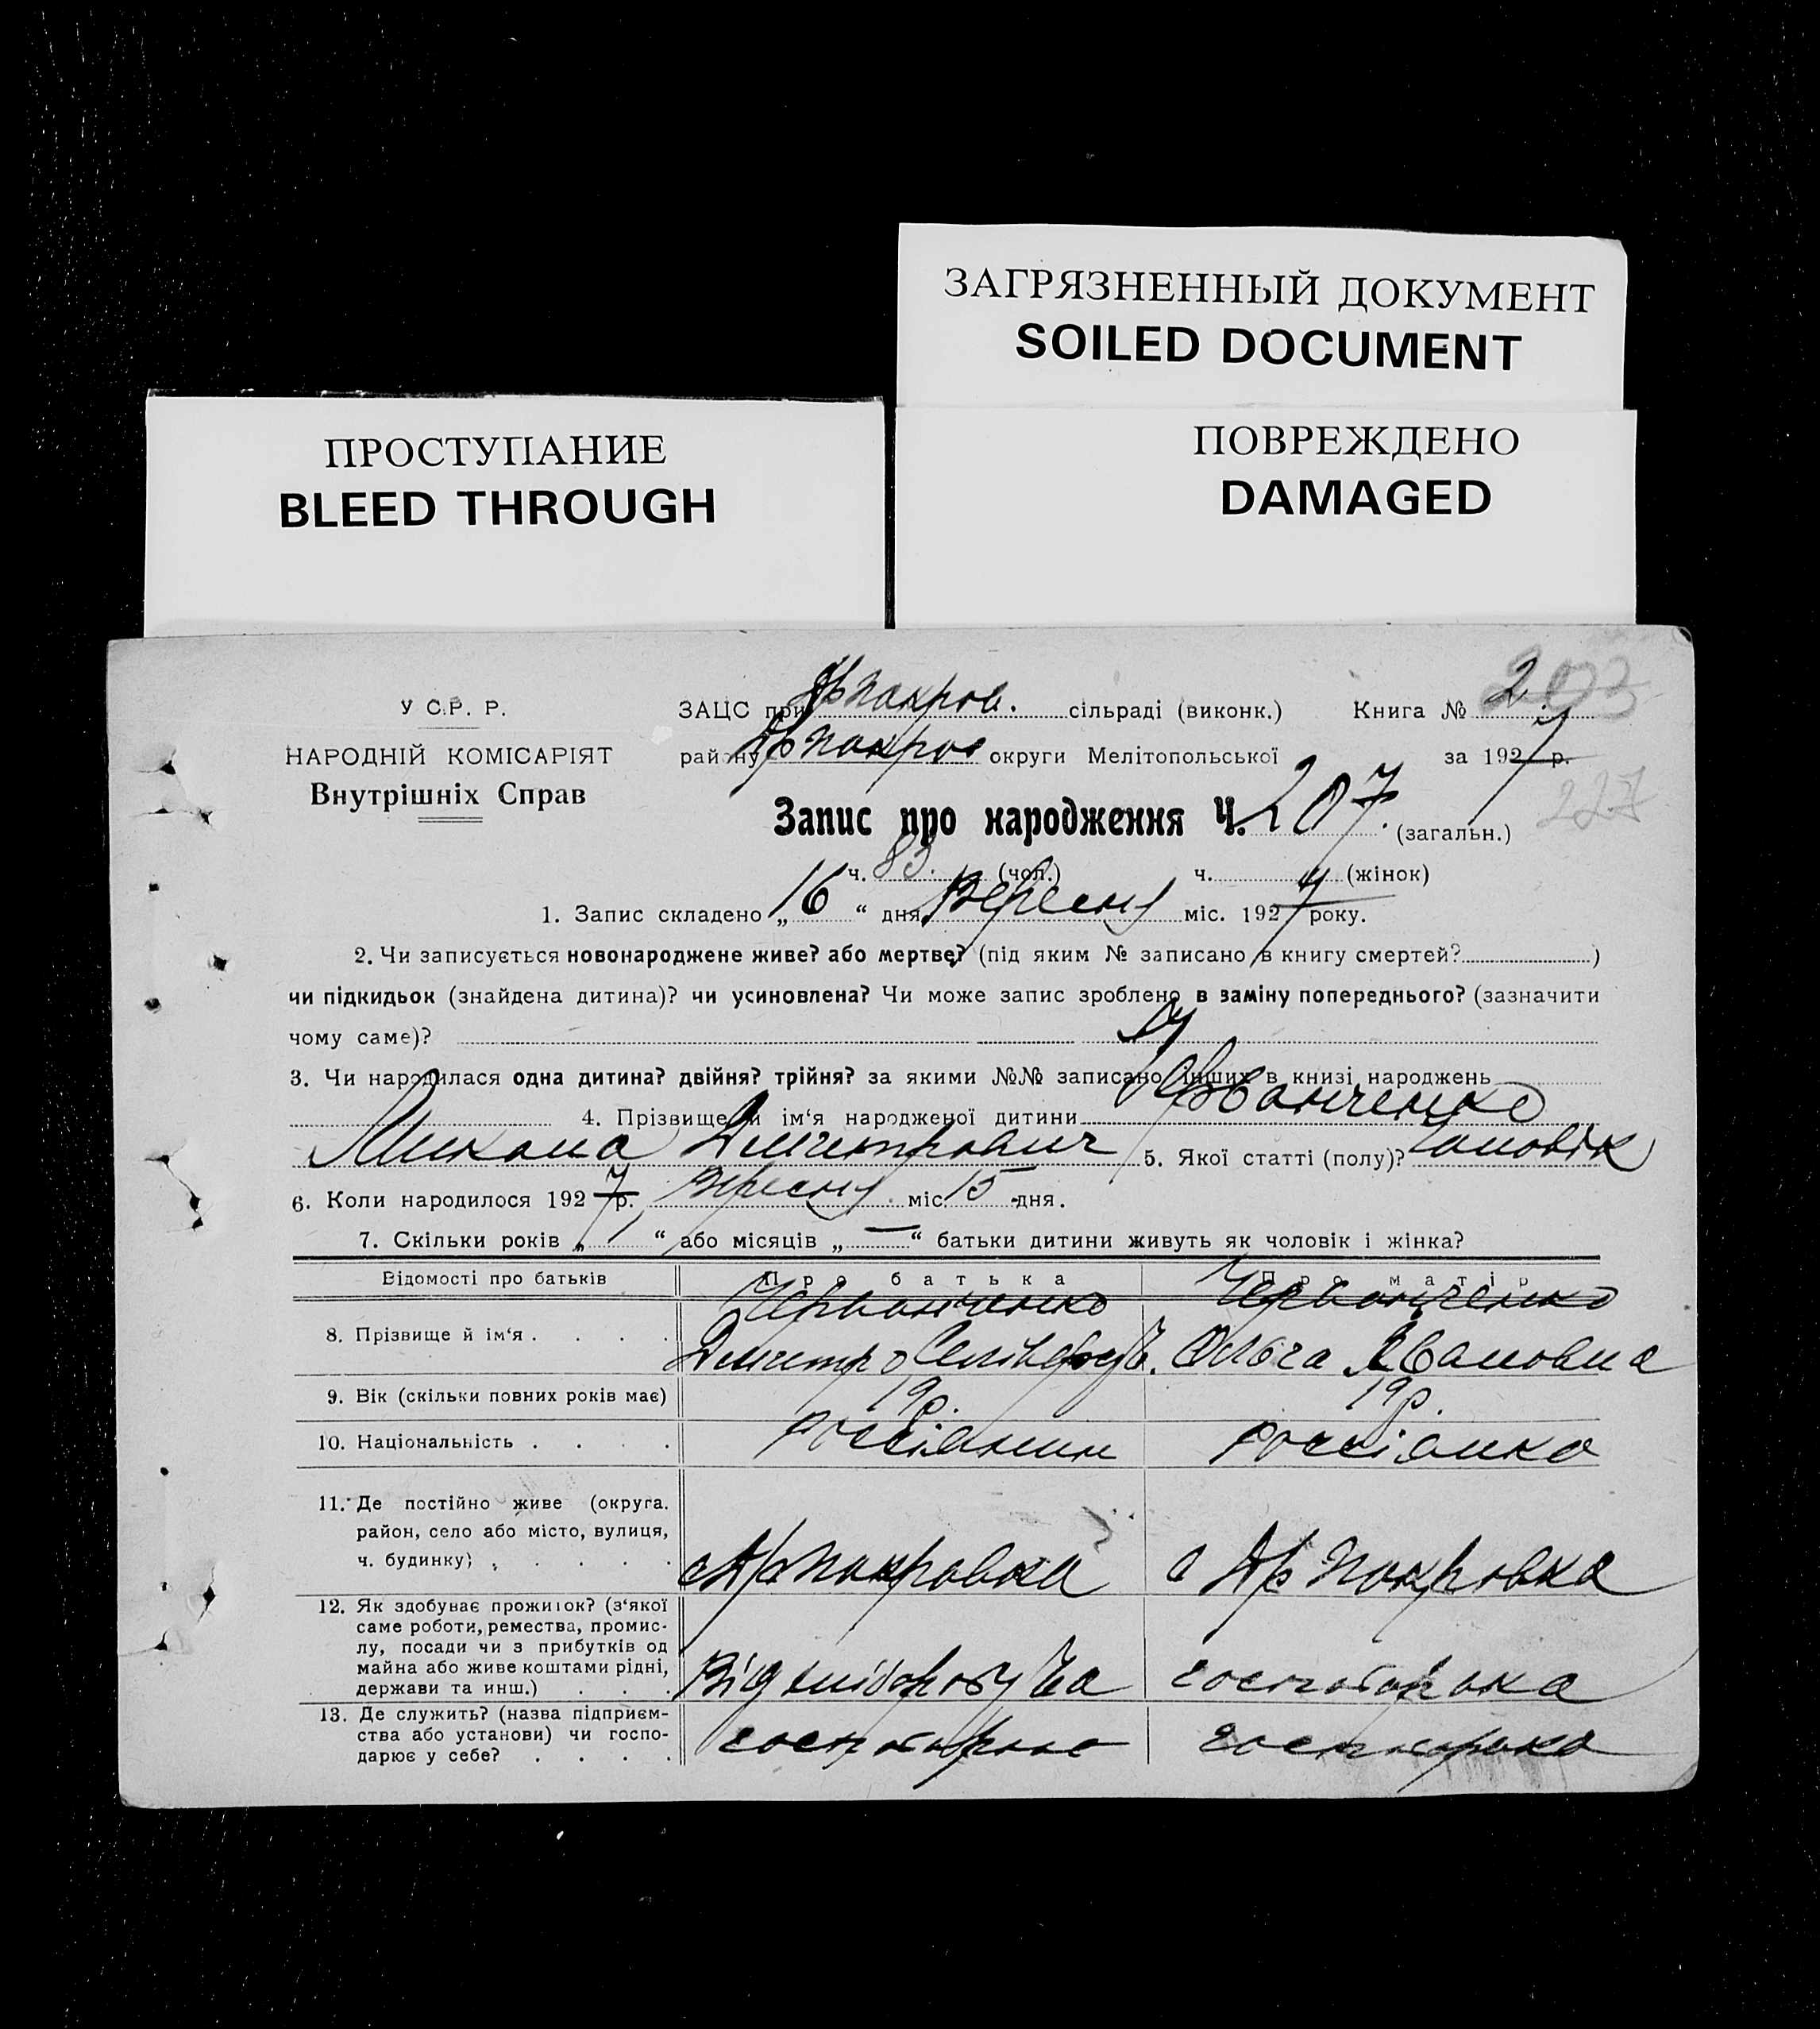 ЗАГРЯЗНЕННЫЙ ДОКУМЕНТ
SOILED DOCUMENT
ПРОСТУПАНИЕ
BLEED THROUGH
ПОВРЕЖДЕНО
DAMAGED
У С.Р. Р.
НАРОДНІЙ КОМІСАРІЯТ
Внутрішніх Справ
ЗАЦС при сільраді (виконк.) Книга № 2
району округи Мелітопольської за 1927 р.
227
Запис про народження Ч. 207. (загальн.)
ч. 83. (чол.) ч. (жінок)
1. Запис складено „16“ дня Вересня міс. 1927 року.
2. Чи записується новонароджене живе? або мертве? (під яким № записано в книгу смертей? )
чи підкидьок (знайдена дитина)? чи усиновлена? Чи може запис зроблено в заміну попереднього? (зазначити
чому саме)?
3. Чи народилася одна дитина? двійня? трійня? за якими №№ записано інших в книзі народжень
4. Прізвище й ім‘я народженої дитини
Михаил Дмитрович 5. Якої статті (полу)? Чоловік
6. Коли народилося 1927 р. Вересня міс. 15 дня.
7. Скільки років „1“ або місяців „—“ батьки дитини живуть як чоловік і жінка?
Відомості про батьків Про батька Про матір
Червонченко Червонченко
8. Прізвище й ім‘я . . . . Дмитро Ольга Івановна
9. Вік (скільки повних років має) 19р. 19р.
10. Національність . . . . россіянин россіянка
11. Де постійно живе (округа.
район, село або місто, вулиця,
ч. будинку) . . . . . с Ар Покровка с Ар Покровка
12. Як здобуває прожиток? (з‘якої
саме роботи, ремества, промис-
лу, посади чи з прибутків од
майна або живе коштами рідні,
держави та инш.) . . . Від хліборобства господарка
13. Де служить? (назва підприєм-
ства або установи) чи госпо-
дарює у себе? . . . . господарює господарка